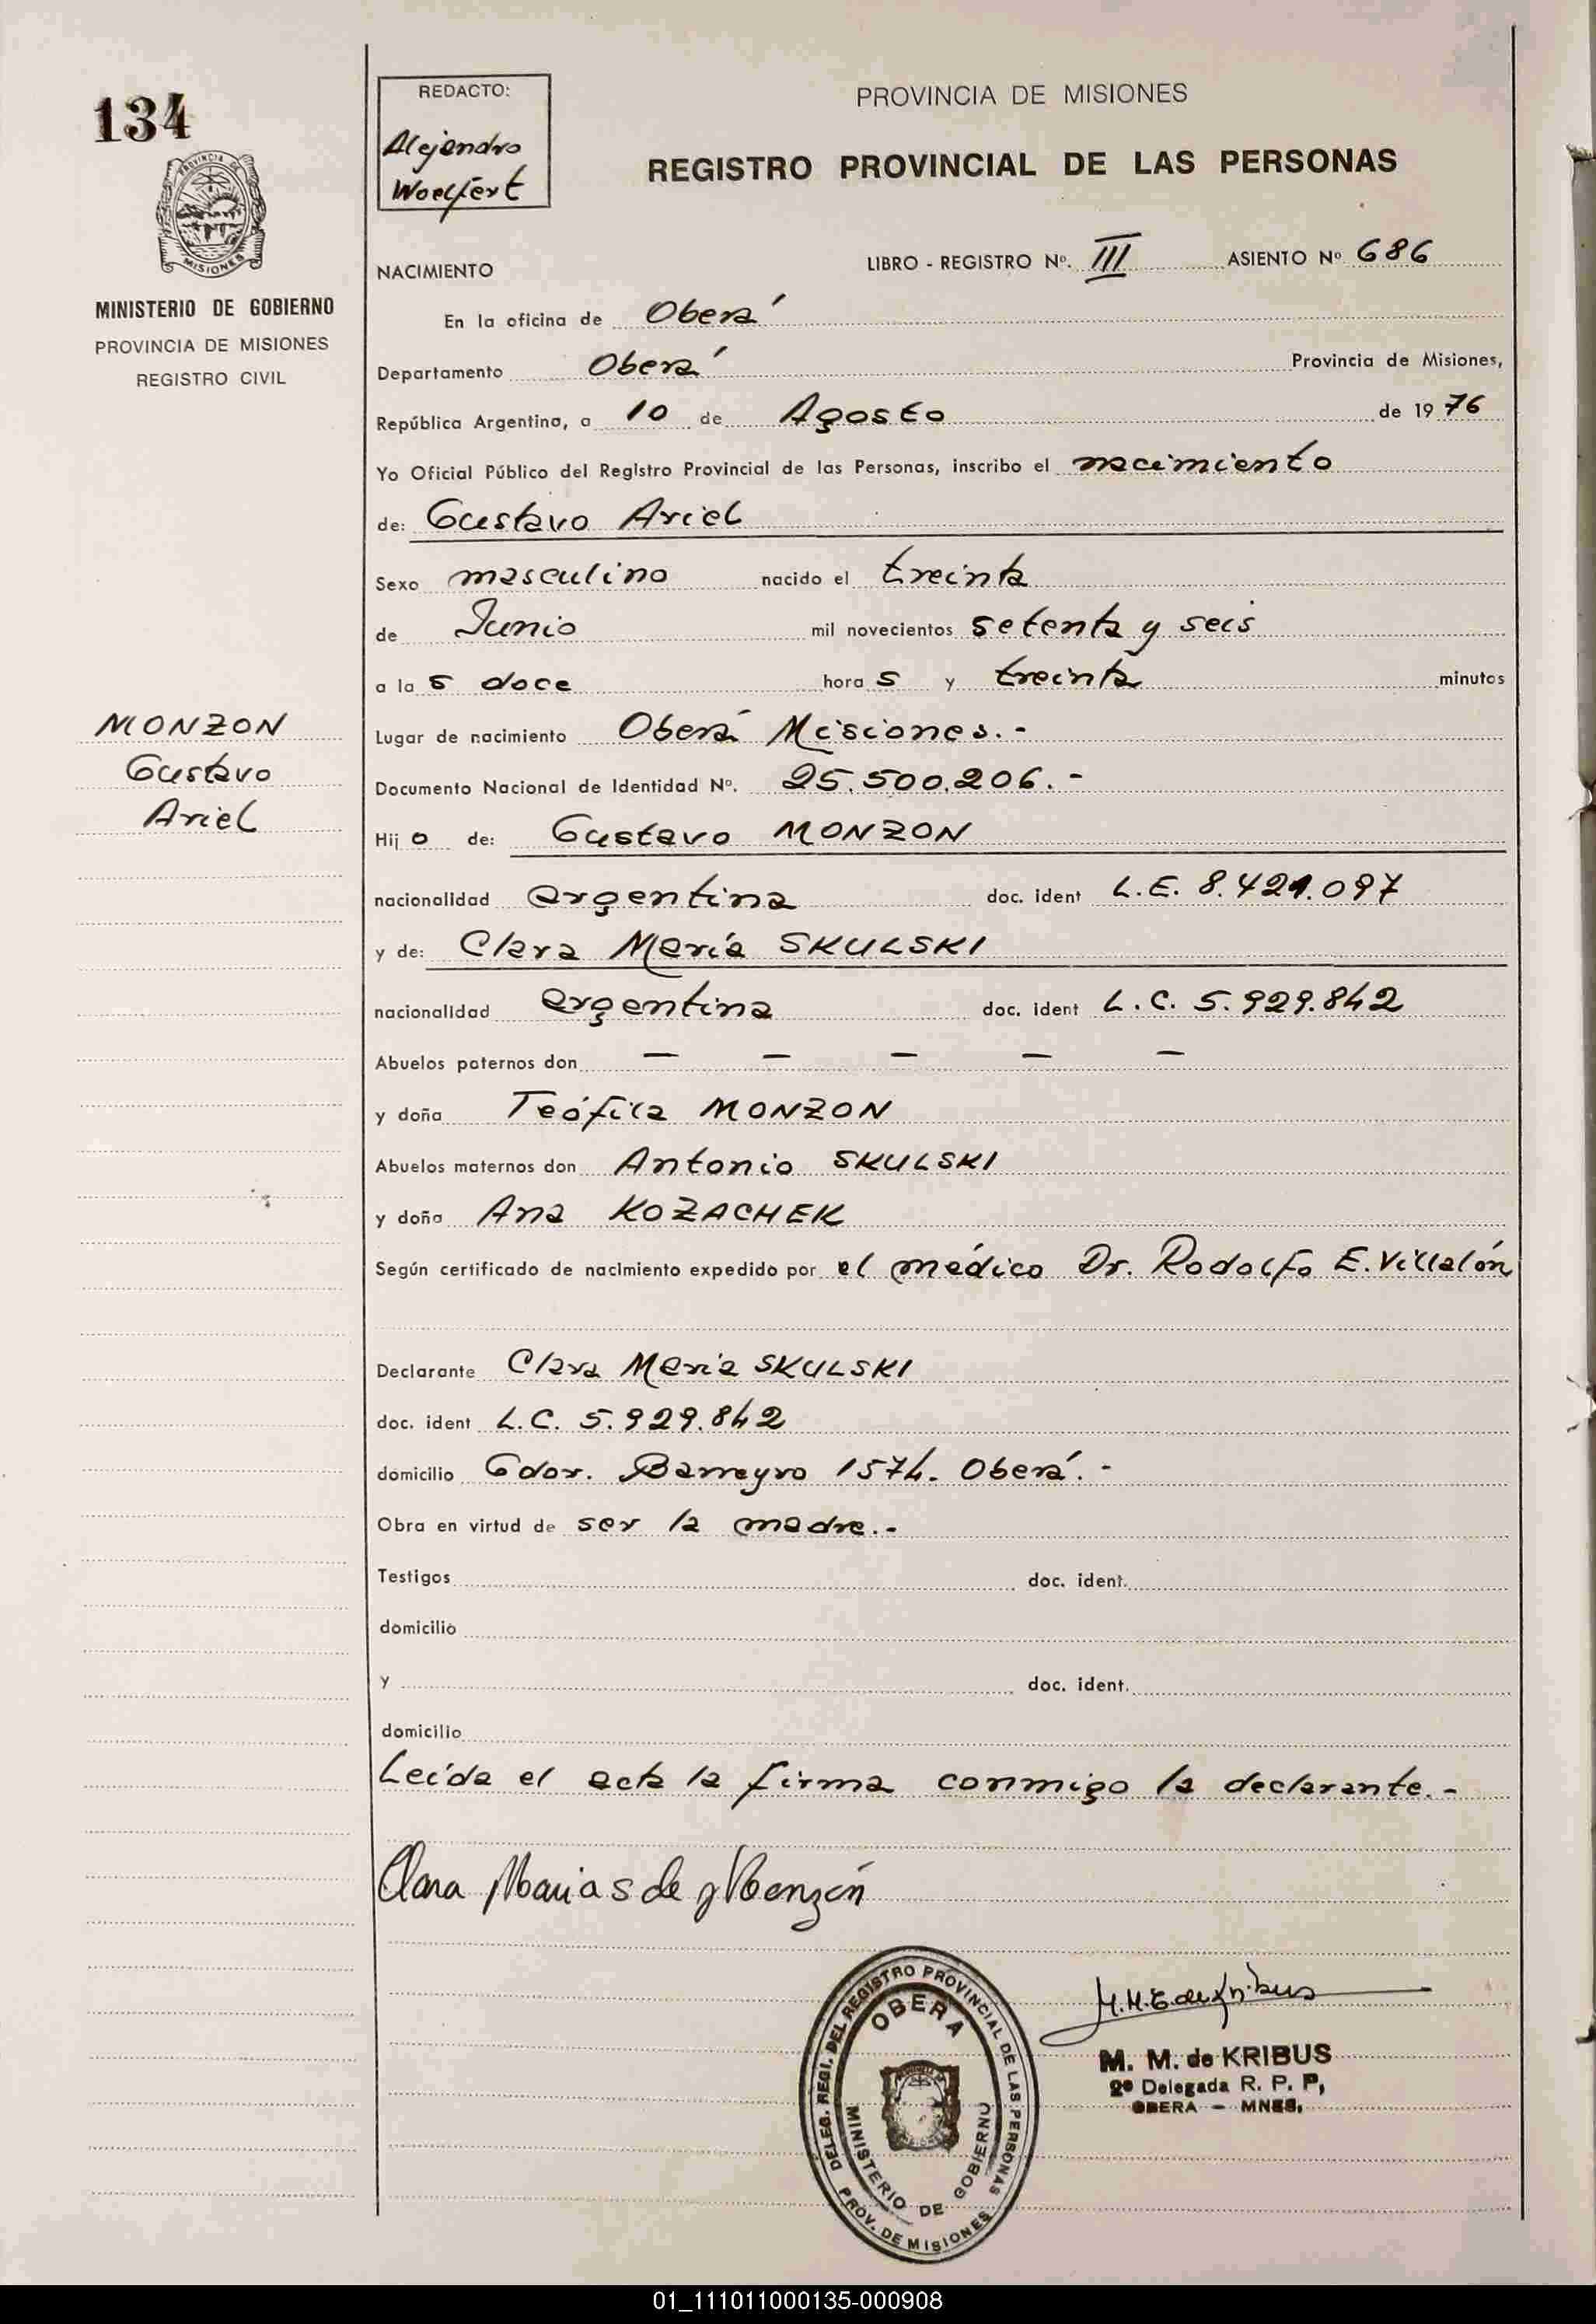 134
PROVINCIA DE MISIONES
MINISTERIO DE GOBIERNO
PROVINCIA DE MISIONES
REGISTRO CIVIL
REDACTO:
Alejandro
Woelfert
PROVINCIA DE MISIONES
REGISTRO PROVINCIAL DE LAS PERSONAS
NACIMIENTO LIBRO - REGISTRO Nº. III ASIENTO Nº 686
En la oficina de Oberá
Departamento Oberá Provincia de Misiones,
República Argentina, a 10 de Agosto de 1976
Yo Oficial Público del Registro Provincial de las Personas, inscribo el nacimiento
de: Gustavo Ariel
Sexo masculino nacido el treinta
de Junio mil novecientos setenta y seis
a la s doce hora s y treinta minutos
MONZON
Gustavo
Ariel
Lugar de nacimiento Oberá Misiones.-
Documento Nacional de Identidad Nº. 25.500.206.-
Hij o de: Gustavo MONZON
nacionalidad argentina doc. ident L.E. 8.421.097
y de: Clara María SKULSKI
nacionalidad argentina doc. ident L.C. 5.929.842
Abuelos paternos don — — — — —
y doña Teófila MONZON
Abuelos maternos don Antonio SKULSKI
y doña Ana KOZACHEK
Según certificado de nacimiento expedido por el médico Dr. Rodolfo E. Villalón
Declarante Clara María SKULSKI
doc. ident L.C. 5.929.842
domicilio Gdor. Barreyro 1574. Oberá.-
Obra en virtud de ser la madre.-
Testigos doc. ident.
domicilio
y doc. ident.
domicilio
Leída el acta la firma conmigo la declarante.-
Clara Maria S de Monzón
DELEG. REGI. DEL REGISTRO PROVINCIAL DE LAS PERSONAS
OBERA
MINISTERIO DE GOBIERNO
PROV. DE MISIONES
M. M. de KRIBUS
2º Delegada R. P. P,
OBERA - MNES.
01_111011000135-000908